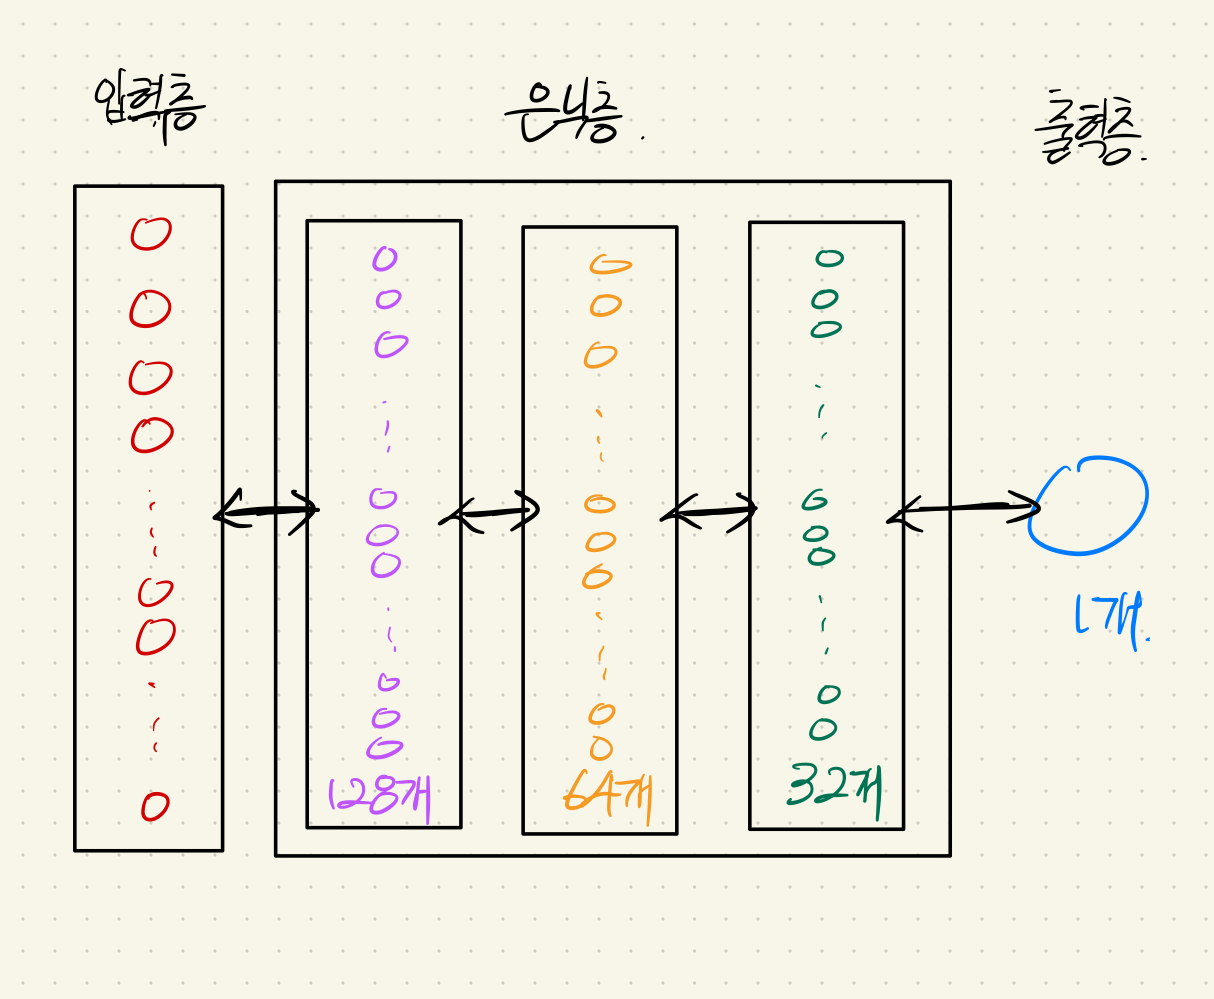 입력층
은닉층.
출력층.
128개
64개
32개
1개.